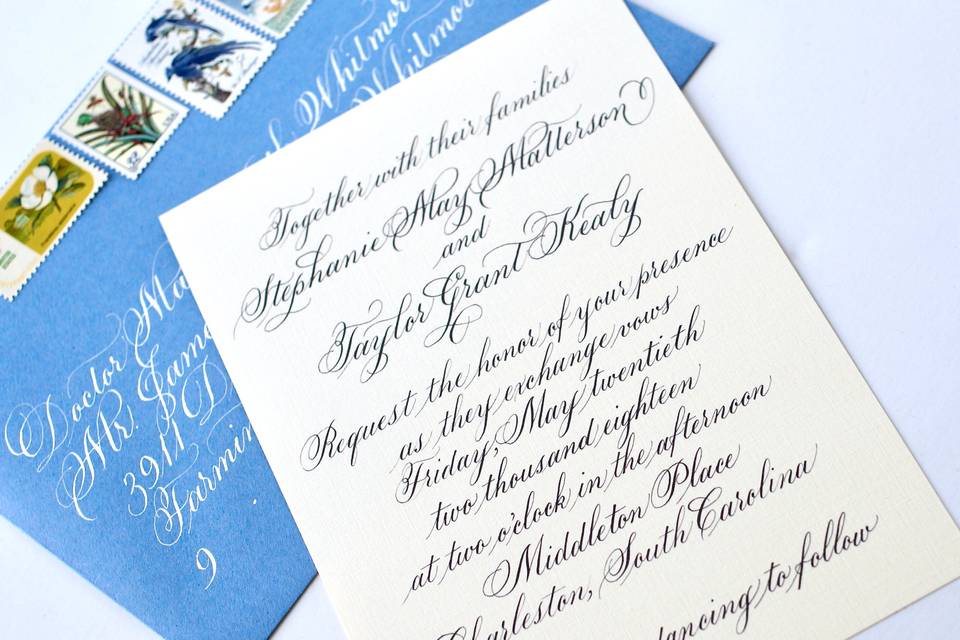 Together with their families
Stephanie May Matterson
and
Taylor Grant Kealy
Request the honor of your presence
as they exchange vows
Friday, May twentieth
two thousand eighteen
at two o'clock in the afternoon
Middleton Place
Charleston, South Carolina
dancing to follow
Whitmor
Whitmor
Doctor Ma
Mr. Jame
3911 D
Farmin
9
USA